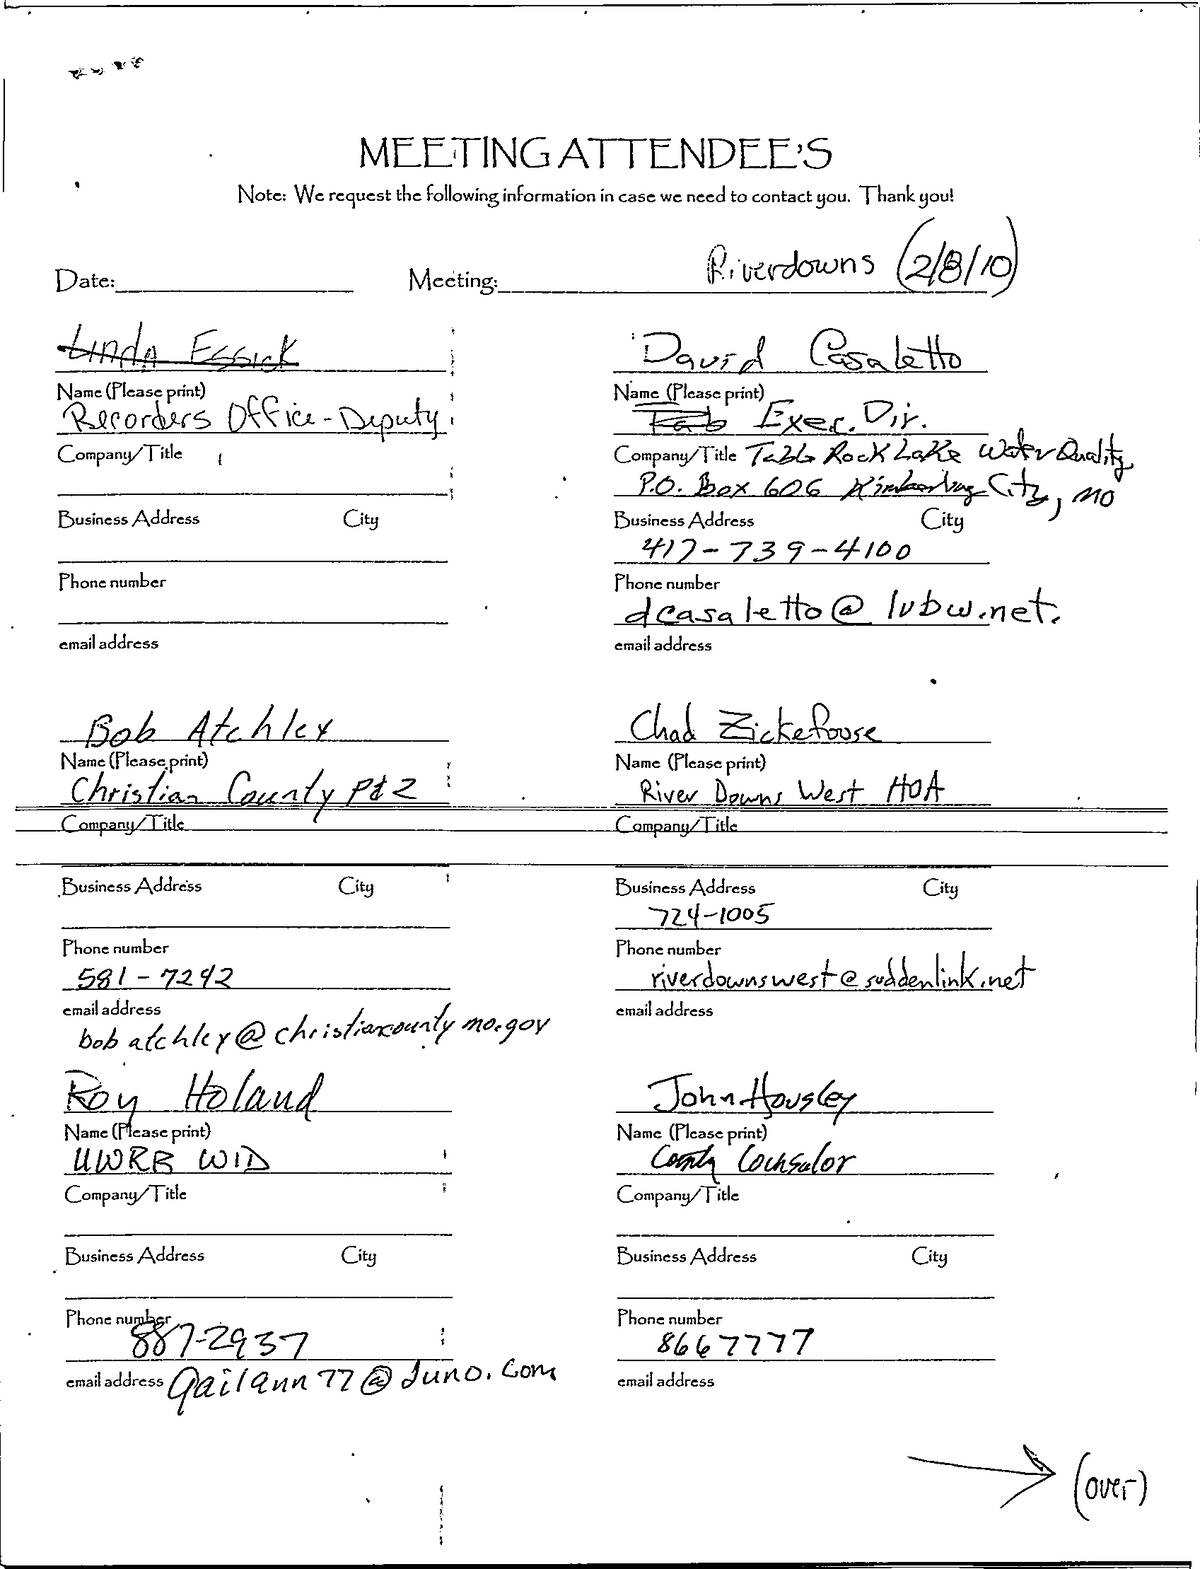 MEETING ATTENDEE'S
Note: We request the following information in case we need to contact you. Thank you!
Date: Meeting: Riverdowns (2/8/10)
Linda Essick
Name (Please print)
Recorders Office - Deputy
Company/Title
Business Address City
Phone number
email address
David Casaletto
Name (Please print)
Exec. Dir.
Company/Title Table Rock Lake Water Quality
P.O. Box 606 Kimberling City, MO
Business Address City
417-739-4100
Phone number
dcasaletto@lvbw.net.
email address
Bob Atchley
Name (Please print)
Christian County P&Z
Company/Title
Business Address City
Phone number
581-7242
email address
bobatchley@christiancountymo.gov
Chad Zickefoose
Name (Please print)
River Downs West HOA
Company/Title
Business Address City
724-1005
Phone number
riverdownswest@suddenlink.net
email address
Roy Holand
Name (Please print)
UWRB WID
Company/Title
Business Address City
Phone number
887-2937
email address Gailann77@Juno.com
John Housley
Name (Please print)
County Counsalor
Company/Title
Business Address City
Phone number
8667777
email address
(over)